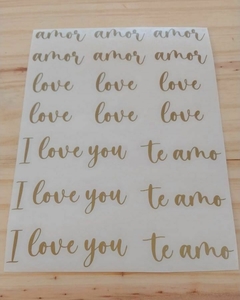 amor amor amor
amor amor amor
love love love
love love love
I love you te amo
I love you te amo
I love you te amo